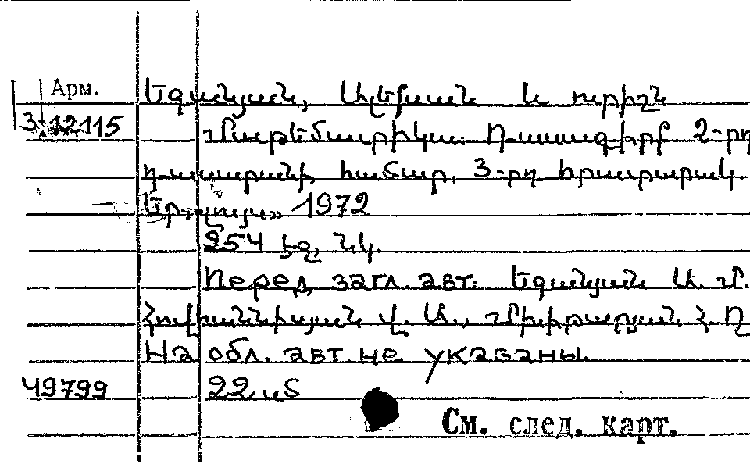 Арм. Եգանյան, Ալեքսան և ուրիշն
3-12115 Մաթեմատիկա. Դասագիրք 2-րդ
դասարանի համար, 3-րդ հրատարակ
1972
254 էջ, նկ.
Перед загл. авт. Եգանյան Ա. Մ.
Հովհաննիսյան Վ. Ա., Մխիթարյան Հ. Ղ
На обл. авт. не указаны.
49799
См. след. карт.